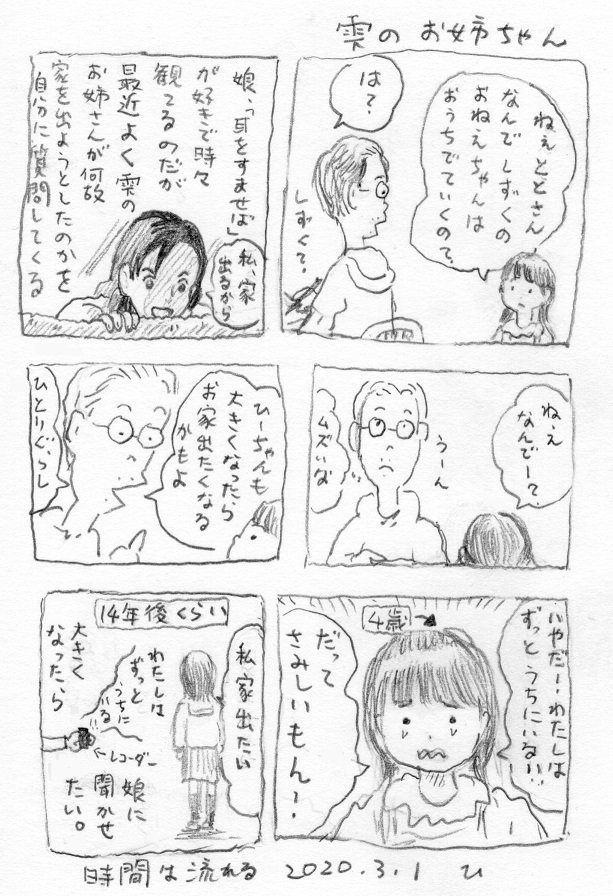 雫の お姉ちゃん
ねぇととさん
なんで しずくの
おねえちゃんは
おうちでていくので?
は?
しずくて?
娘、「耳をすませば」
が好きで時々
観てるのだが
最近よく雫の
お姉さんが何故
家を出ようとしたのかを
自分に質問してくる
私、家
出るから
ねぇ
なんでー?
うーん
ムズいな
ひーちゃんも
大きくなったら
お家出たくなる
かもよ
ひとりぐらし
いやだー!わたしは
ずっとうちにいる!!
4歳
だって
さみしいもん〜
14年後くらい
私家出たい
わたしは
ずっと
うちに
いる
←レコーダー
大きく
なったら
娘に
聞かせ
たい。
時間は流れる 2020.3.1 ひ